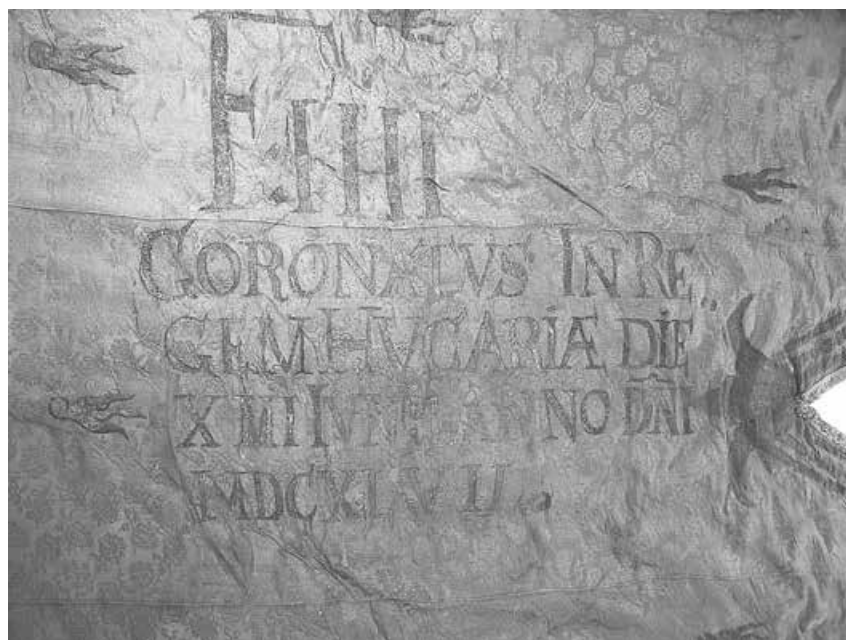 F. IIII
CORONATVS IN RE
GEM HVGARIÆ DIE
XVII IVNII ANNO DÑI
MDCXLVII